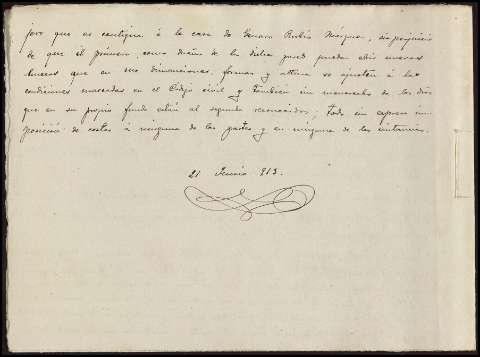 pozo que es contiguo á la casa de Genaro Rubio Márquez, sin perjuicio
de que el primero, como dueño de la dicha pared pueda abrir nuevos
huecos que en sus dimensiones, forma y altura se ajusten á las
condiciones marcadas en el Código civil y tambien sin menoscabo de los dos
que en su propio fundo están al segundo reconocidos; todo sin expresa im-
posición de costas á ninguna de las partes y en ninguna de las instancias.
21 Junio 913.